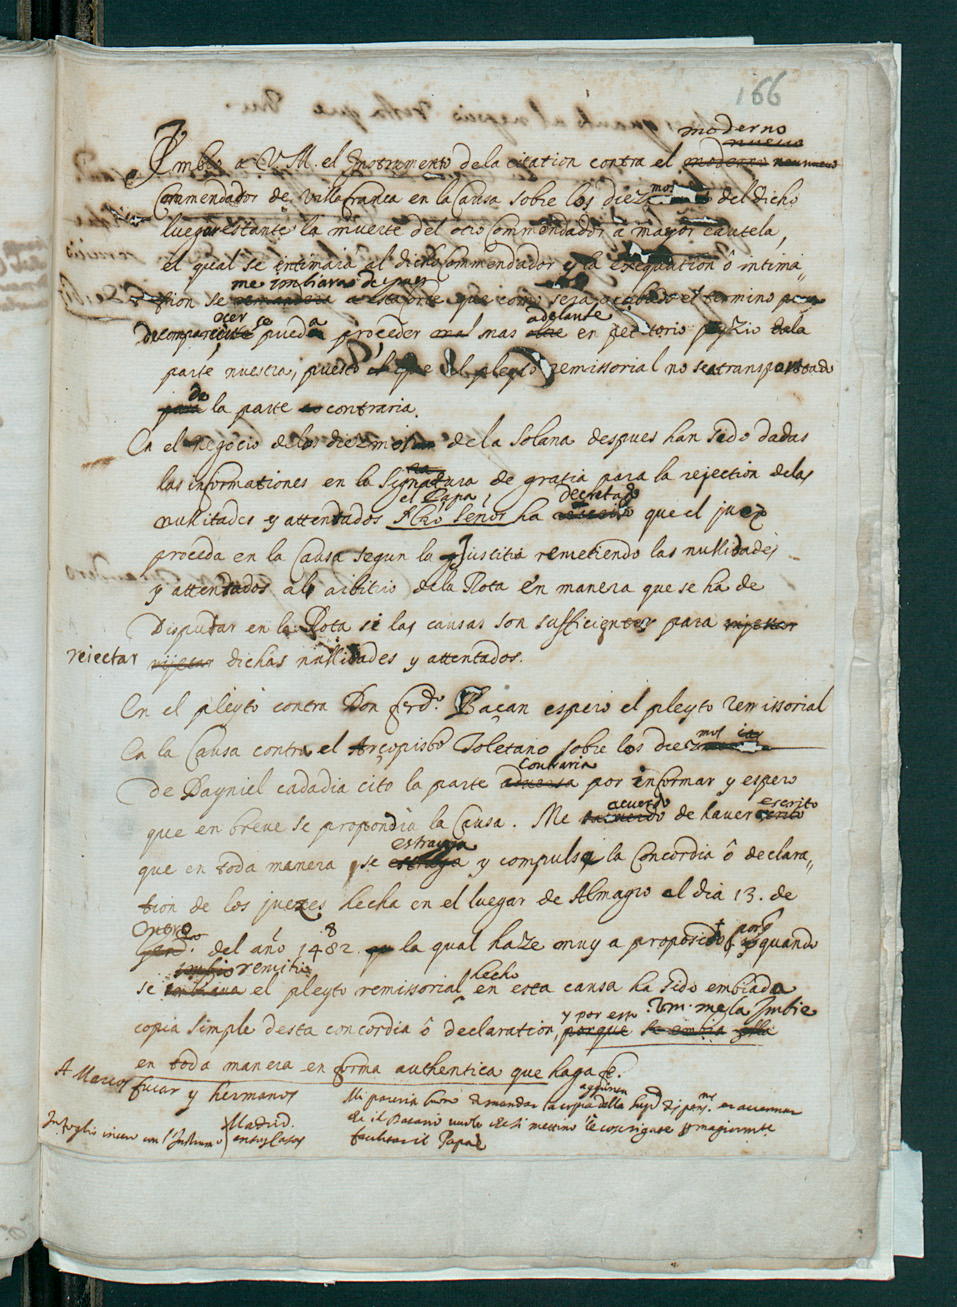 166
moderno
nuevo
Imbio a V.M. el Instrumento de la citation contra el moderno nen nuevo
Commendador de Villafranca en la Causa sobre los diezmos del dicho
luegar estante la muerte del otro Commendador à mayor cautela,
el qual se intimarà al dicho Commendador y la exequation ô intima„
tion se remandara a esta corte que como sera acabado el termino
me imbiarà despues
de comparecer se pueda proceder mas adelante en petitorio juyzio dala
parte nuestra, puesto che el pleyto remissorial no sea transportado
da la parte contraria.
En el negocio delos diezmos de la Solana despues han sido dadas
las informationes en la Signatura de gratia para la rejection delas
el Papa,
nullitades y attentados N̄ro Señor ha decretado que el juez
proceda en la Causa segun la Justitia remetiendo las nullidades
y attentados al arbitrio de la Rota en manera que se ha de
Disputar en la Rota si las causas son sufficientes para rijetter
reiectar rijetar dichas nullidades y attentados.
En el pleyto contra Don Frdo. Baçan espero el pleyto remissorial
En la Causa contra el Arçopisbo Toletano sobre los diezmos
contraria
De Dayniel cadadia cito la parte adversa por informar y espero
que en breve se propondrà la Causa. Me acuerdo de haver escrito
que en toda manera se estrayga y compulsa la Concordia ô declara„
tion de los juezes hecha en el luegar de Almagro el dia 13. de
del año 1482. la qual haze muy a proposito porq quando
remitio hecho
se embiava el pleyto remissorial en esta causa ha sido embiada
y por esso Vm. me la Imbie
copia simple desta concordia ô declaration, porque se embia
en toda manera en forma authentica que haga fe.
A Marcos
fucar y hermanos
Madrid.
en sus casas
facilitar il Papa